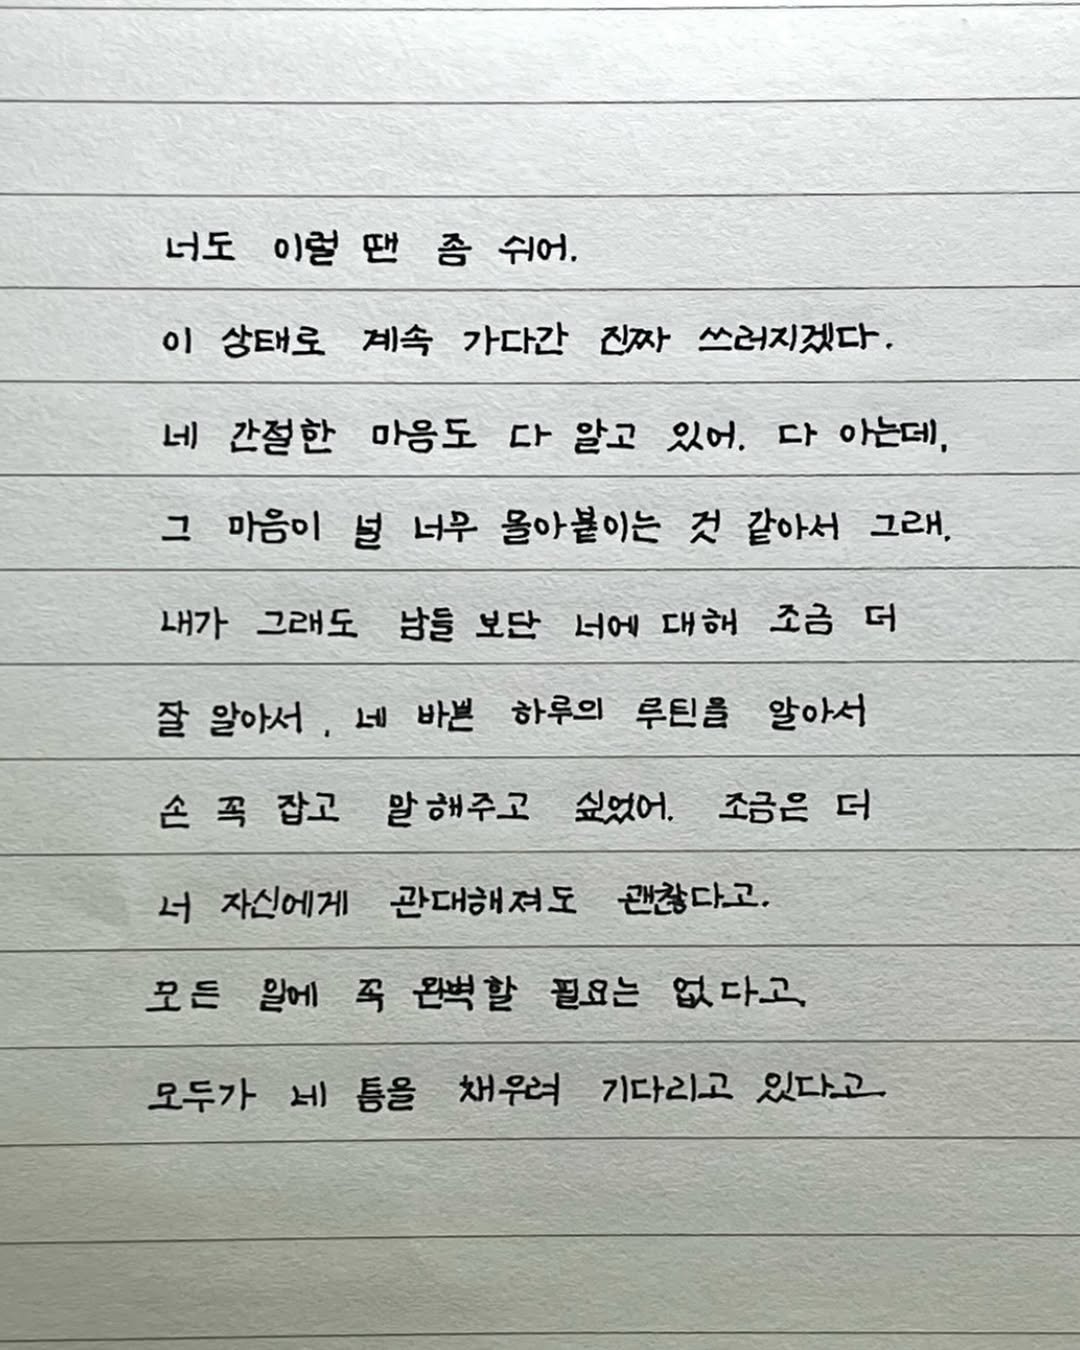 너도 이럴 땐 좀 쉬어.
이 상태로 계속 가다간 진짜 쓰러지겠다.
네 간절한 마음도 다 알고 있어. 다 아는데,
그 마음이 널 너무 몰아붙이는 것 같아서 그래.
내가 그래도 남들 보단 너에 대해 조금 더
잘 알아서, 네 바쁜 하루의 루틴을 알아서
손 꼭 잡고 말해주고 싶었어. 조금은 더
너 자신에게 관대해져도 괜찮다고.
모든 일에 꼭 완벽할 필요는 없다고.
모두가 네 틈을 채우려 기다리고 있다고